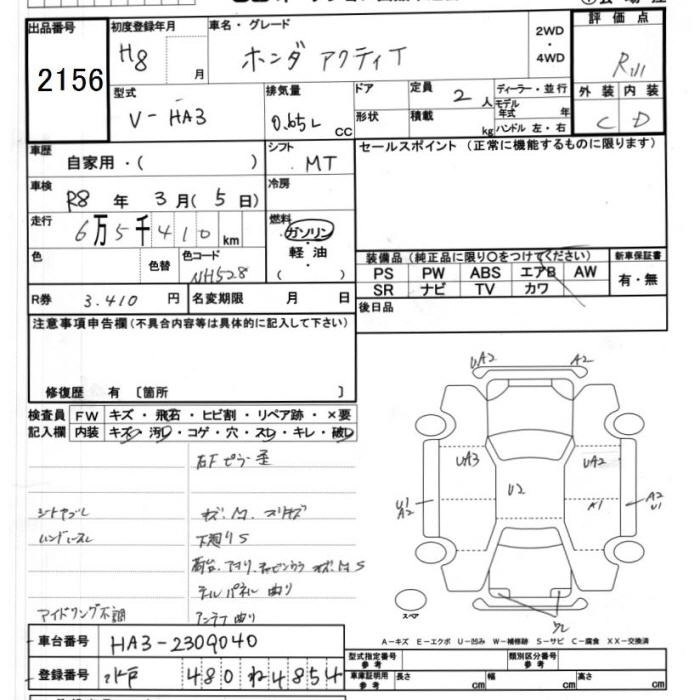 出品番号 初度登録年月 車名・グレード 2WD・4WD 評価点
2156 H8 月 ホンダ アクティT
型式 排気量 ドア 定員 2人 ディーラー・並行 外装 内装
V-HA3 0.65L CC 形状 積載 kg モデル年式 年 C D
ハンドル 左・右
車歴 自家用・( ) シフト MT セールスポイント (正常に機能するものに限ります)
車検 R8 年 3 月( 5 日) 冷房
走行 6万5千410 km 燃料 ガソリン・軽油・( )
色 色替 色コード NH528 装備品 (純正品に限り〇をつけてください) 新車保証書
PS PW ABS エアB AW 有・無
SR ナビ TV カワ
R券 3.410 円 名変期限 月 日 後日品
注意事項申告欄 (不具合内容等は具体的に記入して下さい)
修復歴 有 〔箇所 〕
UA2 A2
検査員 FW キズ・飛石・ヒビ割・リペア跡・×要
記入欄 内装 キズ・汚レ・コゲ・穴・スレ・キレ・破レ
右Fピラー歪
UA3 UA2
U2
U1 A2 A1 A2 U1
シートヤブレ
ハンドルスレ 下廻りS
テールパネル曲り
アイドリング不調 アンテナ曲り
スペア
A-キズ E-エクボ U-凹み W-補修跡 S-サビ C-腐食 XX-交換済
車台番号 HA3-2309040
型式指定番号 参考 類別区分番号 参考
登録番号 水戸 480 ね 4854
車庫証明用 参考 長さ cm 幅 cm 高さ cm